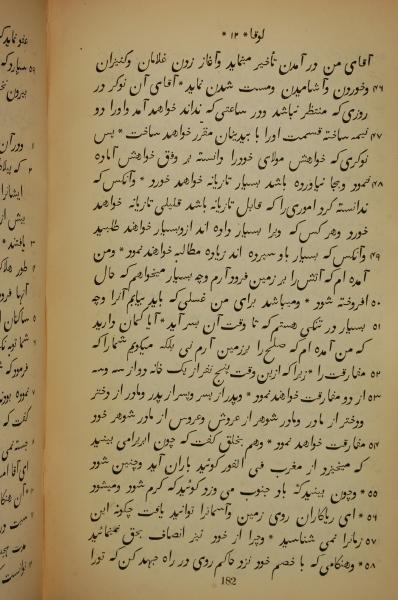 لوقا * ۱۲ *
آقای من در آمدن تأخیر مینماید وآغاز زدن غلامان وکنیزان
۴۶ وخوردن وآشامیدن ومست شدن نماید * آقای آن نوکر در
روزی که منتظر نباشد ودر ساعتی که نداند خواهد آمد واورا دو
۴۷ نیمه ساخته قسمت اورا با بیدینان مقرّر خواهد ساخت * پس
نوکری که خواهش مولای خودرا دانسته بر وفق خواهش آماده
۴۸ نبود وبجا نیاورده باشد بسیار تازیانه خواهد خورد * وآنکس که
ندانسته کرد اموری را که قابل تازیانه باشد قلیلی تازیانه خواهد
خورد وهر کس که ویرا بسیار داده اند ازو بسیار خواهند طلبید
۴۹ وآنکس که بسیار باو سپرده اند زیاده مطالبه خواهند نمود * ومن
آمده ام که آتش را بر زمین فرود آرم وچه بسیار میخواهم که حال
۵۰ افروخته شود * ومیباشد برای من غسلی که باید بیابم آنرا وچه
۵۱ بسیار در تنگی هستم که تا وقت آن بسر آید * آیا گمان دارید
که من آمده ام که صلح را بر زمین آرم نی بلکه میگویم شمارا که
۵۲ مفارقت را * زیرا که ازین وقت پنج نفر از یک خانه دو از سه وسه
۵۳ از دو مفارقت خواهند نمود * وپدر از پسر وپسر از پدر ومادر از دختر
ودختر از مادر ومادر شوهر از عروس وعروس از مادر شوهر خود
۵۴ مفارقت خواهد نمود * وهم بخلق گفت که چون ابر برامی بینید
که میخیزد از مغرب فی الفور گوئید باران آید وچنین شود
۵۵ * وچون بینید که باد جنوب می وزد گوئید که گرم شود ومیشود
۵۶ * ای ریاکاران روی زمین وآسمانرا توانید یافت چگونه این
۵۷ زمانرا نمی شناسید * وچرا از خود نیز انصاف بحق نمینمائید
۵۸ * وهنگامی که با خصم خود نزد حاکم روی در راه جهد کن که تورا
182